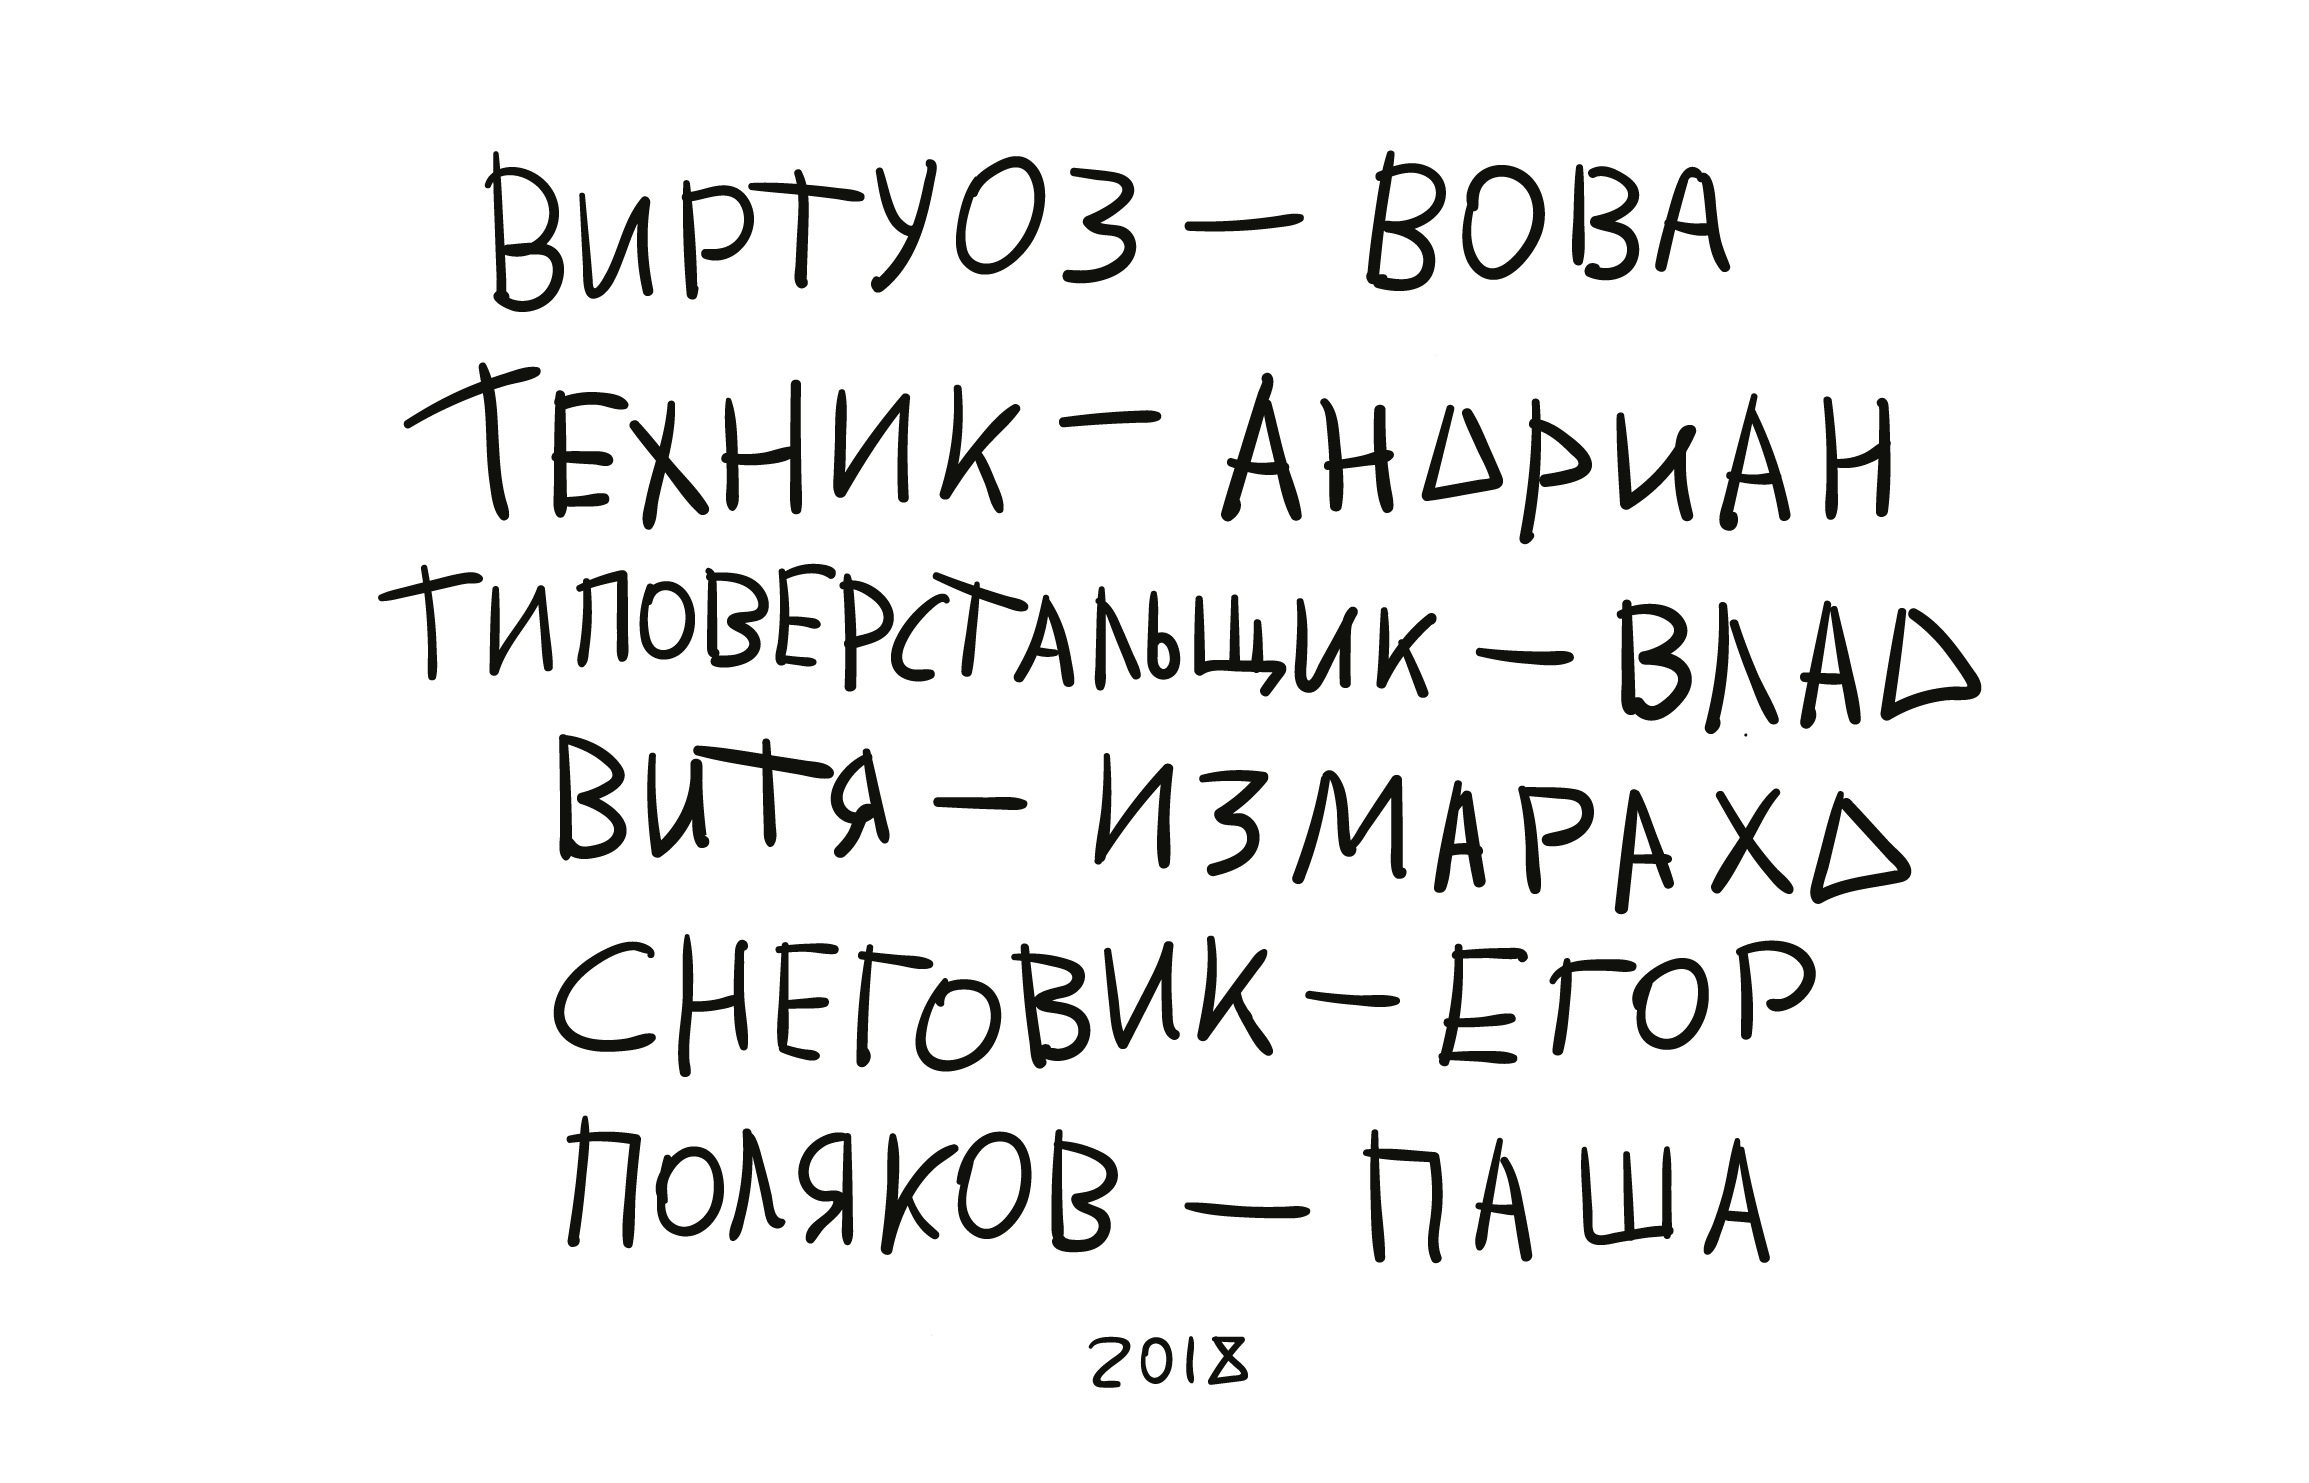 ВИРТУОЗ — ВОВА
ТЕХНИК — АНДРИАН
ТИПОВЕРСТАЛЬЩИК — ВЛАД
ВИТЯ — ИЗМАРАХД
СНЕГОВИК — ЕГОР
ПОЛЯКОВ — ПАША
2018